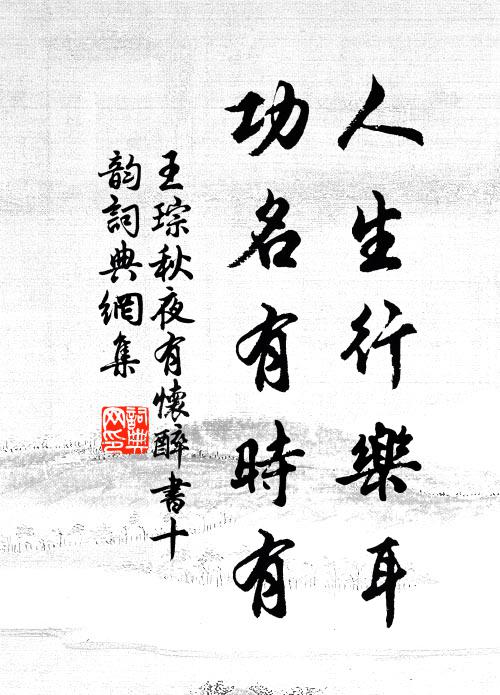 人生行樂耳
功名有時有
王琮秋夜有懷醉書十
韵詞典網集
詞典
网印